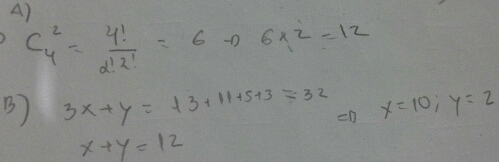 A)
C₄² = 4!/2!2! = 6 ⇒ 6×2 = 12
B) 3x+y = 13+11+5+3 = 32
⇒ x=10; y=2
x+y=12